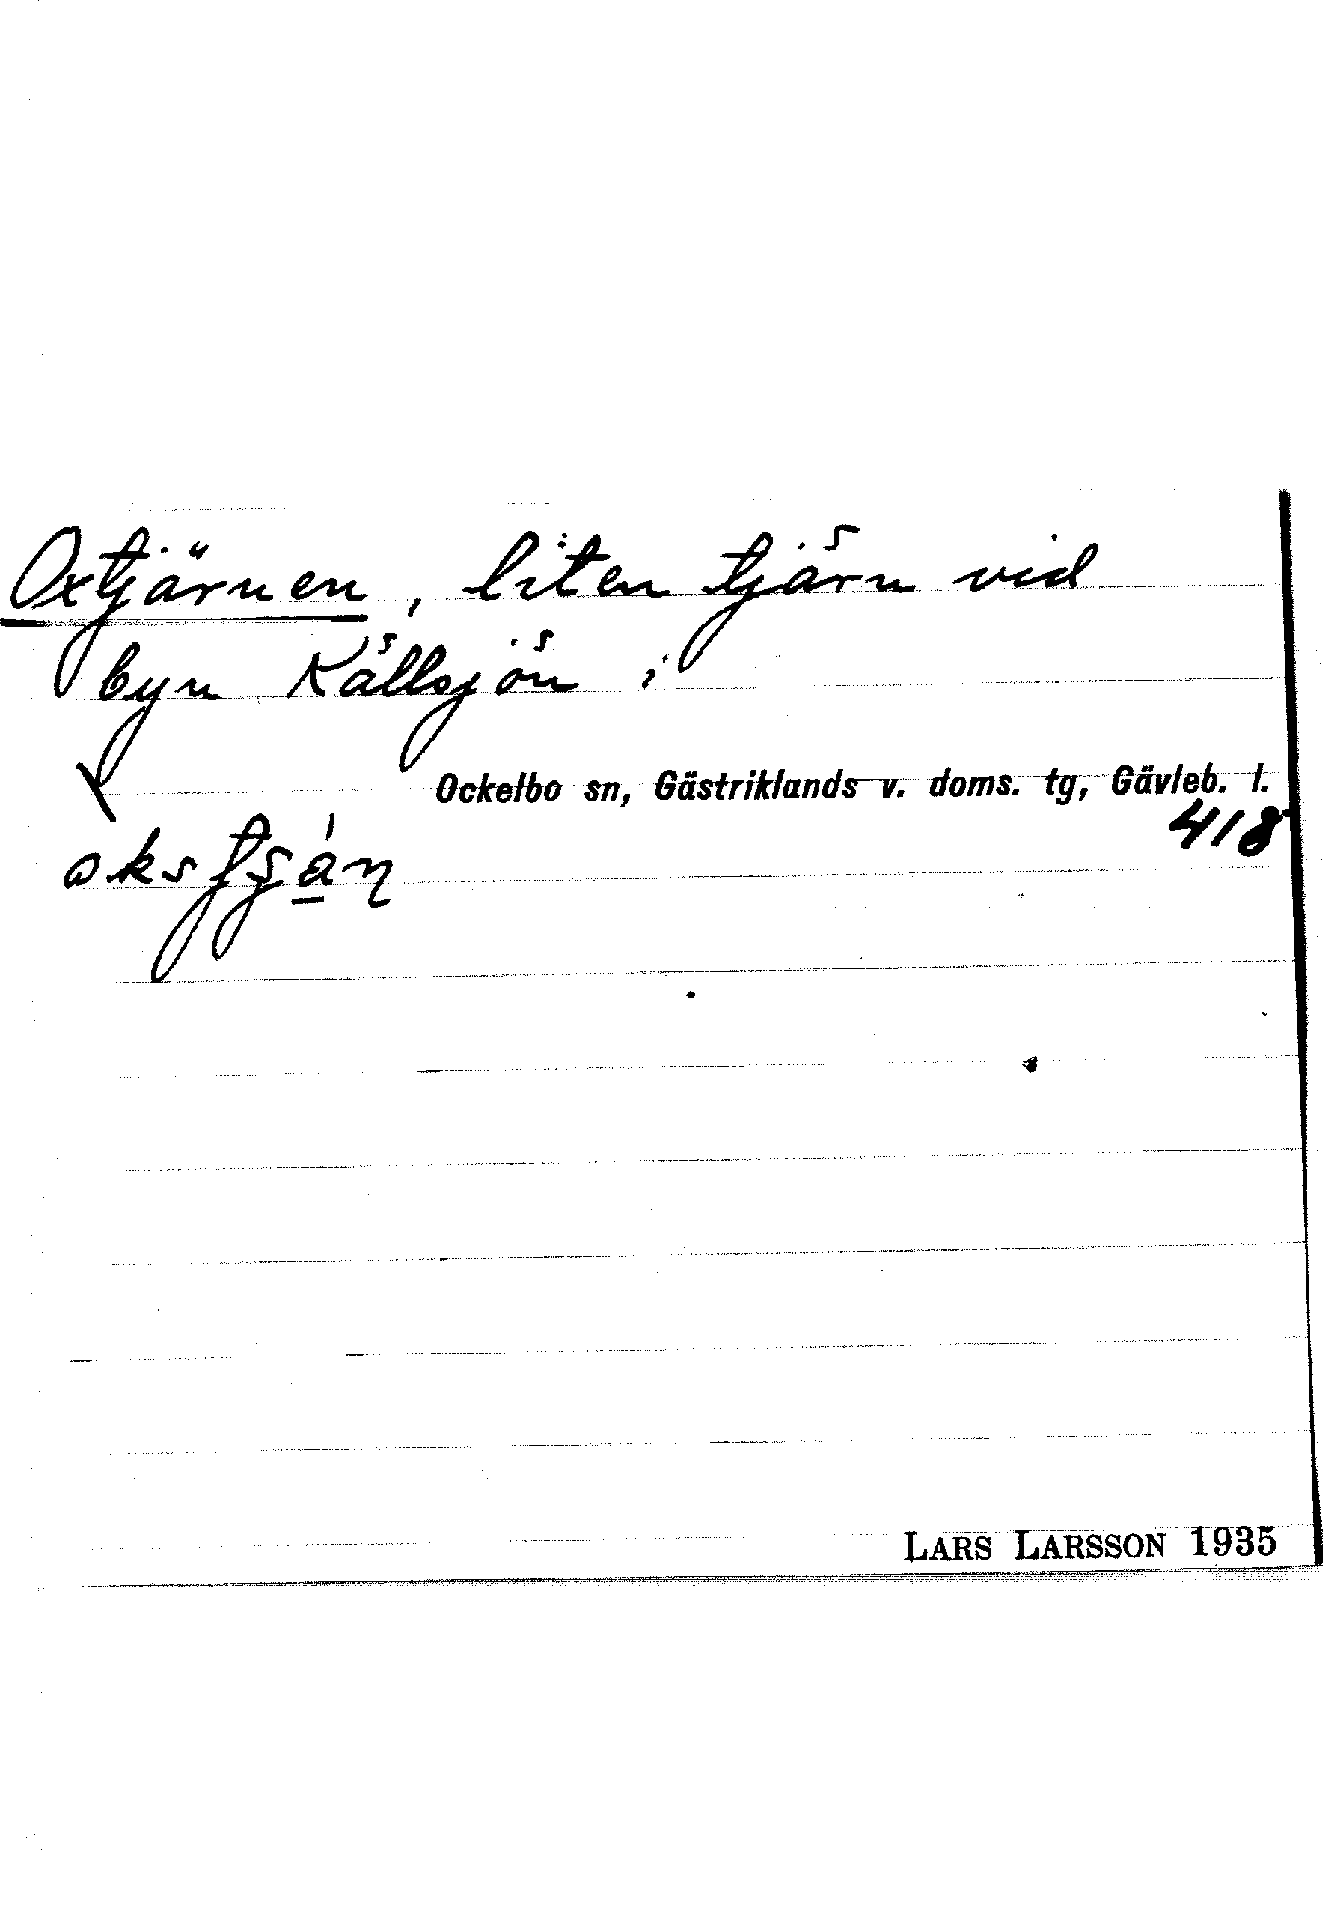 Oxtjärnen, liten tjärn vid
byn Källsjön i
Ockelbo sn, Gästriklands v. doms. tg, Gävleb. l.
418
LARS LARSSON 1935